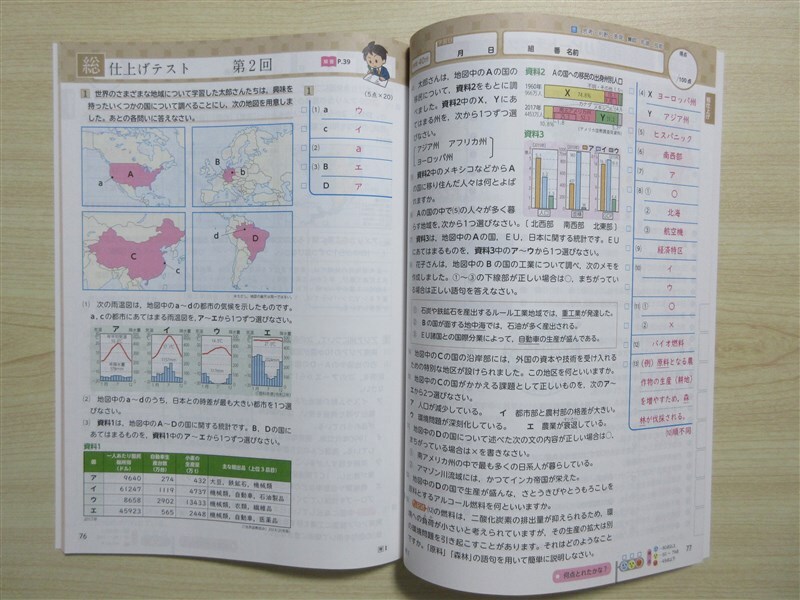 総 仕上げテスト 第2回
P.39
1 世界のさまざまな地域について学習した太郎さんたちは，興味を
持ったいくつかの国について調べることにし，次の地図を用意しま
した。あとの各問いに答えなさい。
a A
B b
C c
d D
(1) 次の雨温図は，地図中のa～dの都市の気候を示したものです。
a，cの都市にあてはまる雨温図を，ア～エから1つずつ選びなさい。
ア イ ウ エ
(2) 地図中のa～dのうち，日本との時差が最も大きい都市を1つ選
びなさい。
(3) 資料1は，地図中のA～Dの国に関する統計です。B，Dの国に
あてはまるものを，資料1中のア～エから1つずつ選びなさい。
資料1
ア 9640 274 432 大豆，鉄鉱石，機械類
イ 61247 1119 4737 機械類，自動車，石油製品
ウ 8658 2902 13433 機械類，衣類，繊維品
エ 45923 565 2448 機械類，自動車，医薬品
76
1
(5点×20)
(1) a ウ
c イ
(2) a
(3) B エ
D ア
月 日
組 番 名前
得点
/100点
太郎さんは，地図中のAの国の
移民について，資料2をもとに調
べました。資料2中のX，Yにあ
てはまる州を，次から1つずつ選
びなさい。
アジア州 アフリカ州
ヨーロッパ州
資料2中のメキシコなどからA
の国に移り住んだ人々は何とよば
れますか。
Aの国の中で(5)の人々が多く暮
らす地域を，次から1つ選びなさい。
[北西部 南西部 北東部]
資料3は，地図中のAの国，EU，日本に関する統計です。EU
にあてはまるものを，資料3中のア～ウから1つ選びなさい。
花子さんは，地図中のBの国の工業について調べ，次のメモを
作成しました。①～③の下線部が正しい場合は○，まちがってい
る場合は正しい語句を答えなさい。
石炭や鉄鉱石を産出するルール工業地域では，重工業が発達した。
Bの国が面する地中海では，石油が多く産出される。
EU諸国との国際分業によって，自動車の生産が盛んである。
地図中のCの国の沿岸部には，外国の資本や技術を受け入れる
ための特別な地区が設けられました。この地区を何といいますか。
地図中のCの国がかかえる課題として正しいものを，次のア～
エから2つ選びなさい。
ア 人口が減少している。 イ 都市部と農村部の格差が大きい。
ウ 環境問題が深刻化している。 エ 農業が衰退している。
地図中のDの国について述べた次の文の内容が正しい場合は○，
まちがっている場合は×を書きなさい。
南アメリカ州の中で最も多くの日系人が暮らしている。
アマゾン川流域には，かつてインカ帝国が栄えた。
地図中のDの国で生産が盛んな，さとうきびやとうもろこしを
原料とするアルコール燃料を何といいますか。
の燃料は，二酸化炭素の排出量が抑えられるため，環
境への負荷が小さいと考えられていますが，その生産の拡大は別
の環境問題を引き起こすことがあります。それはどのようなこと
ですか。「原料」「森林」の語句を用いて簡単に説明しなさい。
何点とれたかな？
77
資料2 Aの国への移民の出身州別人口
1960年
X
2017年
Y
資料3
ア イ ウ
(4) X ヨーロッパ州
Y アジア州
(5) ヒスパニック
(6) 南西部
(7) ア
(8) ① ○
② 北海
③ 航空機
(9) 経済特区
(10) イ
ウ
(11) ① ○
② ×
(12) バイオ燃料
(13) (例)原料となる農
作物の生産(耕地)
を増やすため，森
林が伐採される。
(10)順不同